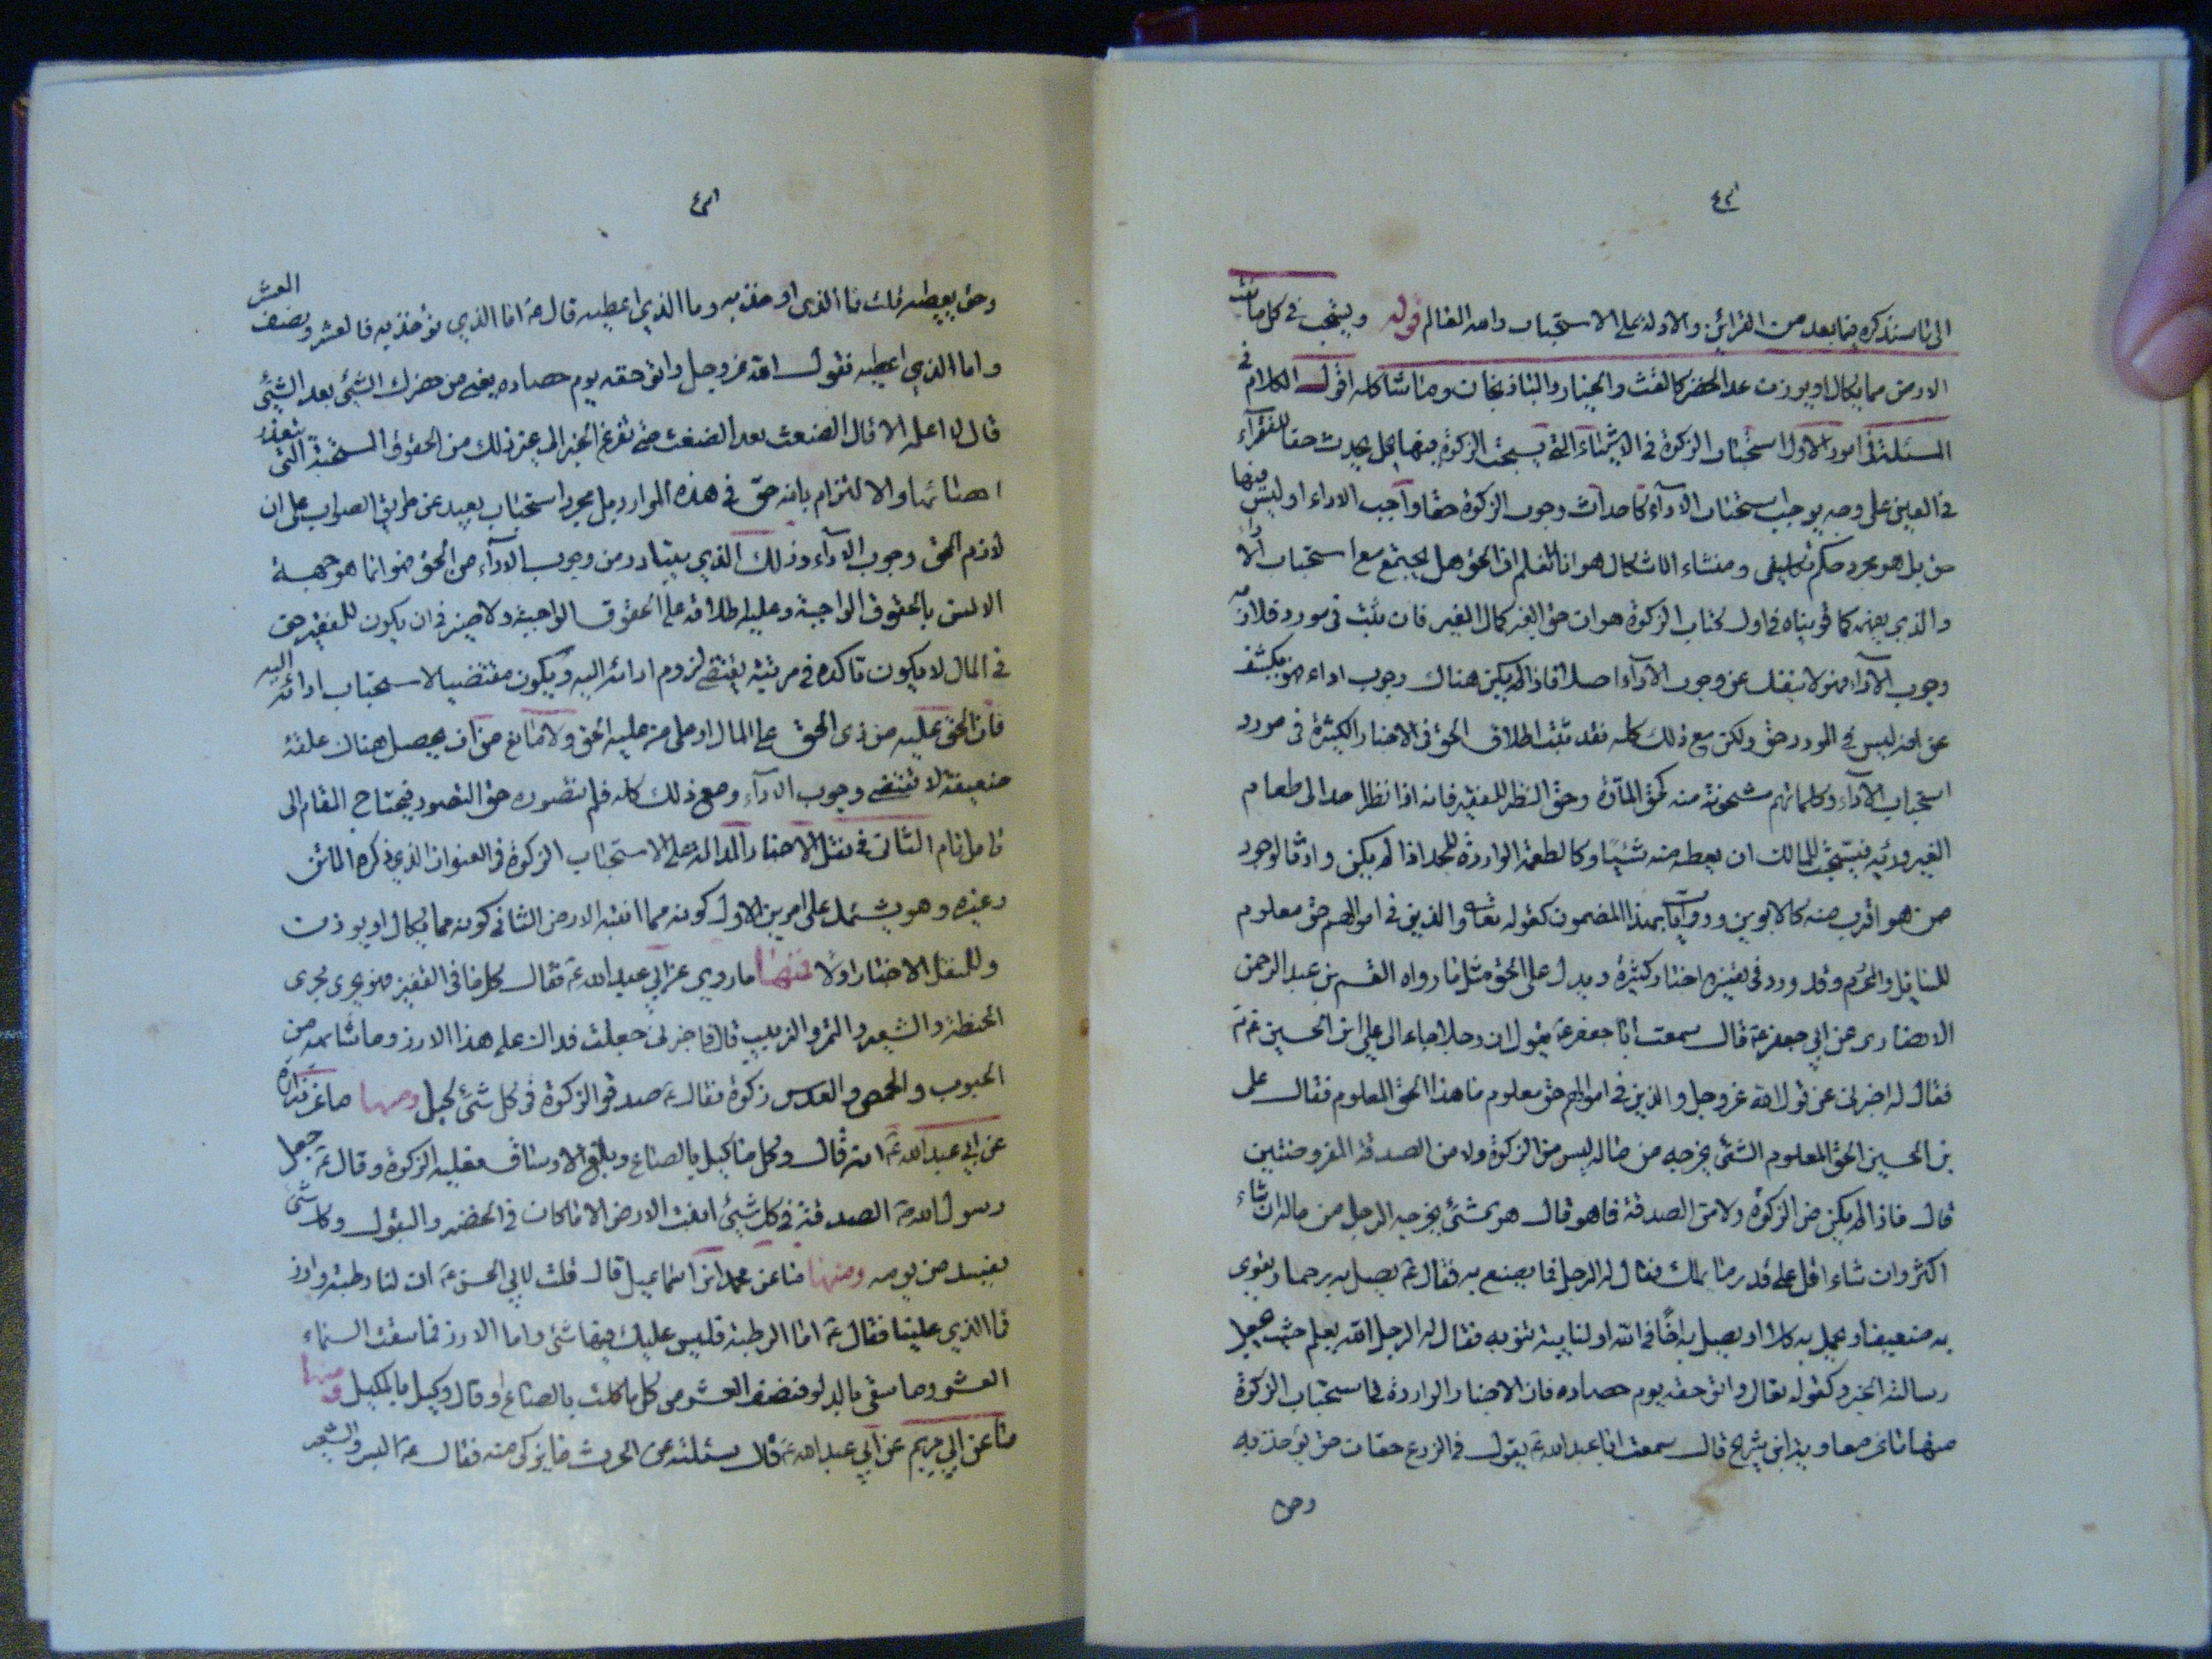 الى ما سنذكره فيما بعد من القرائن والادلة على الاستحباب والله العالم قوله ويستحب فى كل ما تنبت
الارض مما يكال او يوزن عدا الخضر كالقث والخيار والباذنجان وما شاكله اقول الكلام فى
المسئلة فى امور الاول استحباب الزكوة فى الاشياء التى يستحب الزكوة فيها هل يحدث حقا للفقرآء
فى العين على وجه يوجب استحباب الادآء كاحداث وجوب الزكوة حقا واجب الاداء او ليس فيها
حق بل هو مجرد حكم تكليفى ومنشاء الاشكال هو انا لانعلم ان الحق هل يجتمع مع استحباب الادآء
والذى يفهم كما قويناه فى اول كتاب الزكوة هو ان حق الغير كمال الغير فان ثبت فى مورد فلازمه
وجوب الادآء فهو لا ينفك عن وجوب الادآء اصلا فاذا لم يكن هناك وجوب اداء فهو يكشف
عن انه ليس فى المورد حق ولكن مع ذلك كله فقد ثبت اطلاق الحق فى الاخبار الكثيرة فى مورد
استحباب الادآء وكلماتهم مشحونة منه كحق المآرة وحق النظر للفقير فانه اذا نظر احد الى طعام
الغير ورئيه فيستحب للمالك ان يعطيه منه شيئا وكالطعمة الواردة للجد اذا لم يكن وارثا لوجود
من هو اقرب منه كالابوين وورد آيات بهذا المضمون كقوله تعالى والذين فى اموالهم حق معلوم
للسائل والمحروم وقد ورد فى تفسيره اخبار كثيرة ويدل على الحق مثل ما رواه القسم بن عبد الرحمن
الانصارى عن ابى جعفر ع قال سمعت ابا جعفر ع يقول ان رجلا جاء الى على ابن الحسين ع
فقال له اخبرنى عن قول الله عز وجل والذين فى اموالهم حق معلوم ما هذا الحق المعلوم فقال على
بن الحسين الحق المعلوم الشئ يخرجه من ماله ليس من الزكوة ولا من الصدقة المفروضتين
قال فاذا لم يكن من الزكوة ولا من الصدقة فما هو قال هو شئ يخرجه الرجل من ماله ان شاء
اكثر وان شاء اقل على قدر ما يملك فقال له الرجل فما يصنع به فقال ع يصل به رحما ويقوى
به ضعيفا ويحمل به كلا او يصل به اخا فى الله او لنايبة تنوبه فقال له الرجل الله يعلم حيث يجعل
رسالته الخبر وكقوله تعالى واتوا حقه يوم حصاده فان الاخبار الواردة فى استحباب الزكوة
منها ما عن معاوية ابن شريح قال سمعت ابا عبد الله ع يقول فى الزرع حقان حق يؤخذ به
وحق
وحق يعطيه قلت ما الذى اوخذ به وما الذى اعطيه قال ع اما الذى تؤخذ به فالعشر ونصف العشر
واما الذى اعطيه فقول الله عز وجل واتوا حقه يوم حصاده يعنى من حضرك الشئ بعد الشئ
قال لا اعلمه الا قال الضغث بعد الضغث حتى تفرغ الخبر الى غير ذلك من الحقوق المستحبة التى تعذر
احصائها والالتزام بانه حق فى هذه الموارد بل مجرد استحباب بعيد عن طريق الصواب على ان
لازم الحق وجوب الادآء وذلك الذى يتبادر من وجوب الادآء من الحق فهو انما هو جهة
الانس بالحقوق الواجبة وغلبة اطلاقه على الحقوق الواجبة ولا ضير فى ان يكون للفقير حق
فى المال لا يكون تاكده فى مرتبة يقتضى لزوم ادائه اليه ويكون مقتضيا لاستحباب ادائه اليه
فان الحق علقة من ذى الحق على المال او على من عليه الحق ولا مانع من ان يحصل هناك علقة
ضعيفة لا تقتضى وجوب الادآء ومع ذلك كله فلم نتصوره حق التصور فيحتاج المقام الى
تامل تام الثانى فى نقل الاخبار الدالة على الاستحباب الزكوة فى العنوان الذى ذكره الماتن
وغيره وهو يشتمل على امرين الاول كونه مما انبته الارض الثانى كونه مما يكال او يوزن
وللنقل الاخبار اولا فمنها ما روى عن ابى عبد الله ع فقال كل ما فى القفيز فهو يجرى مجرى
الحنطة والشعير والتمر والزبيب قال فاخبرنى جعلت فداك على هذا الارز وما اشبهه من
الحبوب والحمص والعدس زكوة فقال ع صدقوا الزكوة فى كل شئ كيل ومنها ما عن زرارة
عن ابى عبد الله ع انه قال وكل ما كيل بالصاع وبلغ الاوساق فعليه الزكوة وقال ع جعل
رسول الله ص الصدقة فى كل شئ انبتت الارض الا ما كان فى الخضر والبقول وكل شئ
يفسد من يومه ومنها ما عن محمد ابن اسماعيل قال قلت لابى الحسن ع ان لنا رطبة وارز
فما الذى علينا فقال ع اما الرطبة فليس عليك فيها شئ واما الارز فما سقت السماء
العشر وما سقى بالدلو فنصف العشر من كل ما كلت بالصاع او قال وكيل بالمكيل ومنها
ما عن ابى مريم عن ابى عبد الله ع قال سئلته عن الحرث ما يزكى منه فقال ع البر والشعير